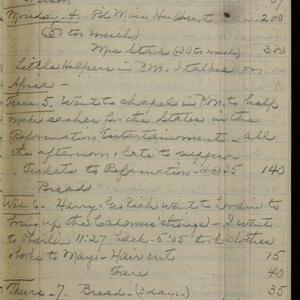 Monday - 4. Pd Miss Hulburt 200
(50 too much)
Mrs Stark (30 too much) 300
Little Helpers in P.M. I talked on
Africa -
Tues. 5. Went to chapel in P.M. to help
make sashes for the States in the
Reformation Entertainment - all
the afternoon & to supper -
Tickets to Reformation - 4 @ 35 140
Bread
Wed. 6. Harry, Geo Rich went to Lorain to
up the things - I went
to 11:27, back - 5:05 took clothes
to Mays - Hair cut 15
Fare 40
Thurs - 7. Bread - (3 days.) 35